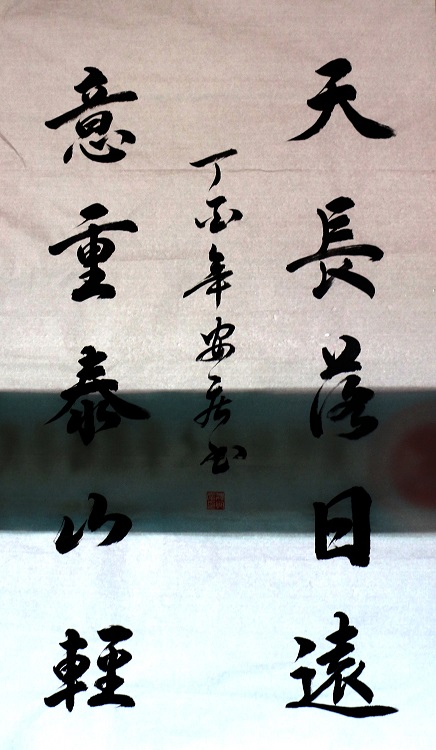 天長落日遠
意重泰山輕
丁酉年安居书